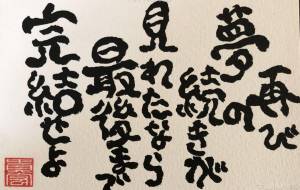 再び
夢の
続きが
見れたなら
最後まで
完結せよ